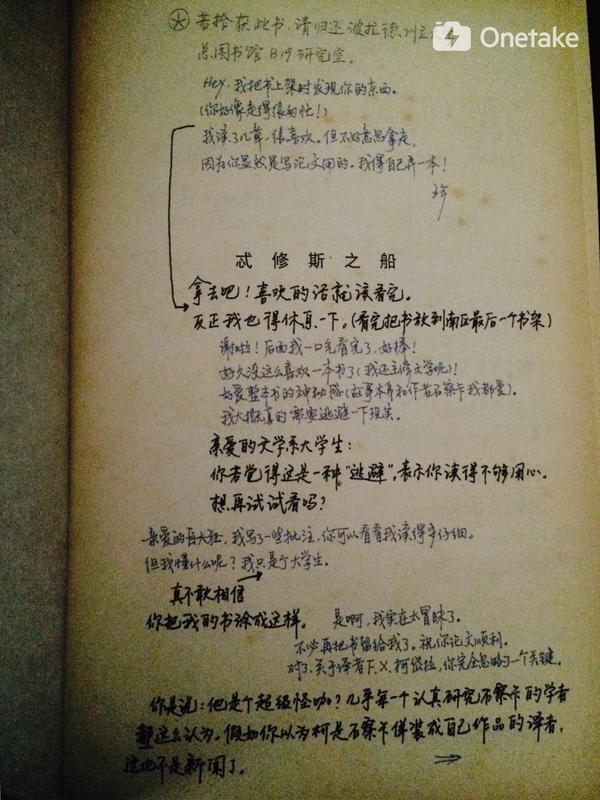 Onetake
若拾获此书，请归还波拉德州立
总图书馆 B19 研究室。
Hey, 我把书上架时发现你的东西。
(你好像走得很匆忙！)
我读了几章，很喜欢。但不好意思拿走，
因为你显然是写论文用的。我得自己弄一本！
珍
忒修斯之船
拿去吧！喜欢的话就该看完。
反正我也得休息一下。(看完把书放到南区最后一个书架)
谢啦！后面我一口气看完了，好棒！
好久没这么喜欢一本书了(我还主修文学呢)！
好爱整本书的神秘感(故事本身和作者石察卡我都爱)。
我大概真的需要逃避一下现实。
亲爱的文学系大学生：
你若觉得这是一种“逃避”，表示你读得不够用心。
想再试试看吗？
亲爱的自大狂，我写了一些批注，你可以看看我读得多仔细。
但我懂什么呢？我只是个大学生。
真不敢相信
你把我的书涂成这样。
是啊，我实在太冒昧了。
不必再把书留给我了。祝你论文顺利。
对了，关于译者F. X. 柯岱拉，你完全忽略了一个关键。
你是说：他是个超级怪咖？几乎每一个认真研究石察卡的学者
都这么认为。假如你以为柯是石察卡佯装成自己作品的译者，
这也不是新闻了。